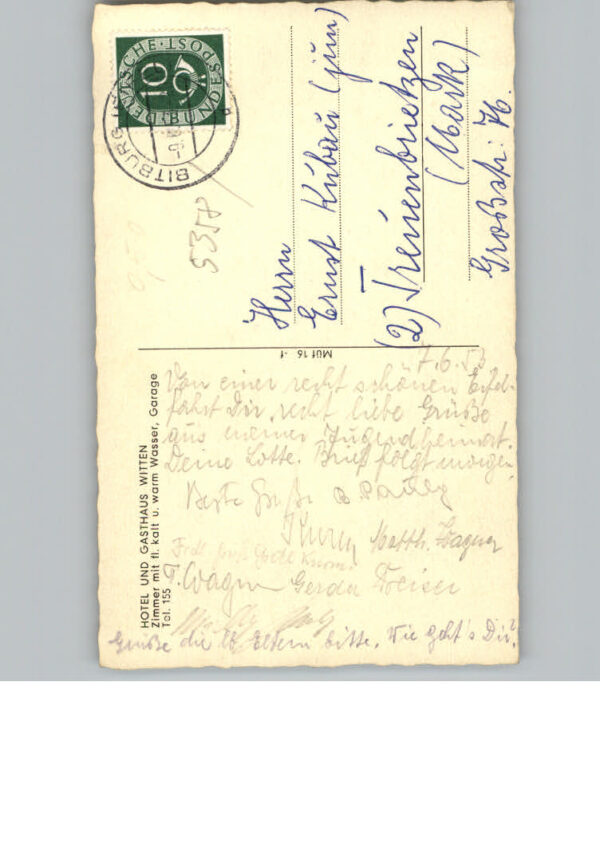 DEUTSCHE BUNDESPOST
10
BITBURG
5358
Herrn
Ernst Kübau (jun)
(2) Treuenbrietzen
(Mark)
Großstr. 76.
Müf 16 -f
7.6.53
Von einer recht schönen Eifel-
fahrt Dir recht liebe Grüße
aus meiner Jugendheimat.
Deine Lotte. Brief folgt morgen
Beste Grüße B Pauly
Matth. Wagner
T. Wagner Gerda
Grüße die lb Eltern bitte. Wie geht's Dir?
HOTEL UND GASTHAUS WITTEN
Zimmer mit fl. kalt u. warm Wasser, Garage
Tel. 155